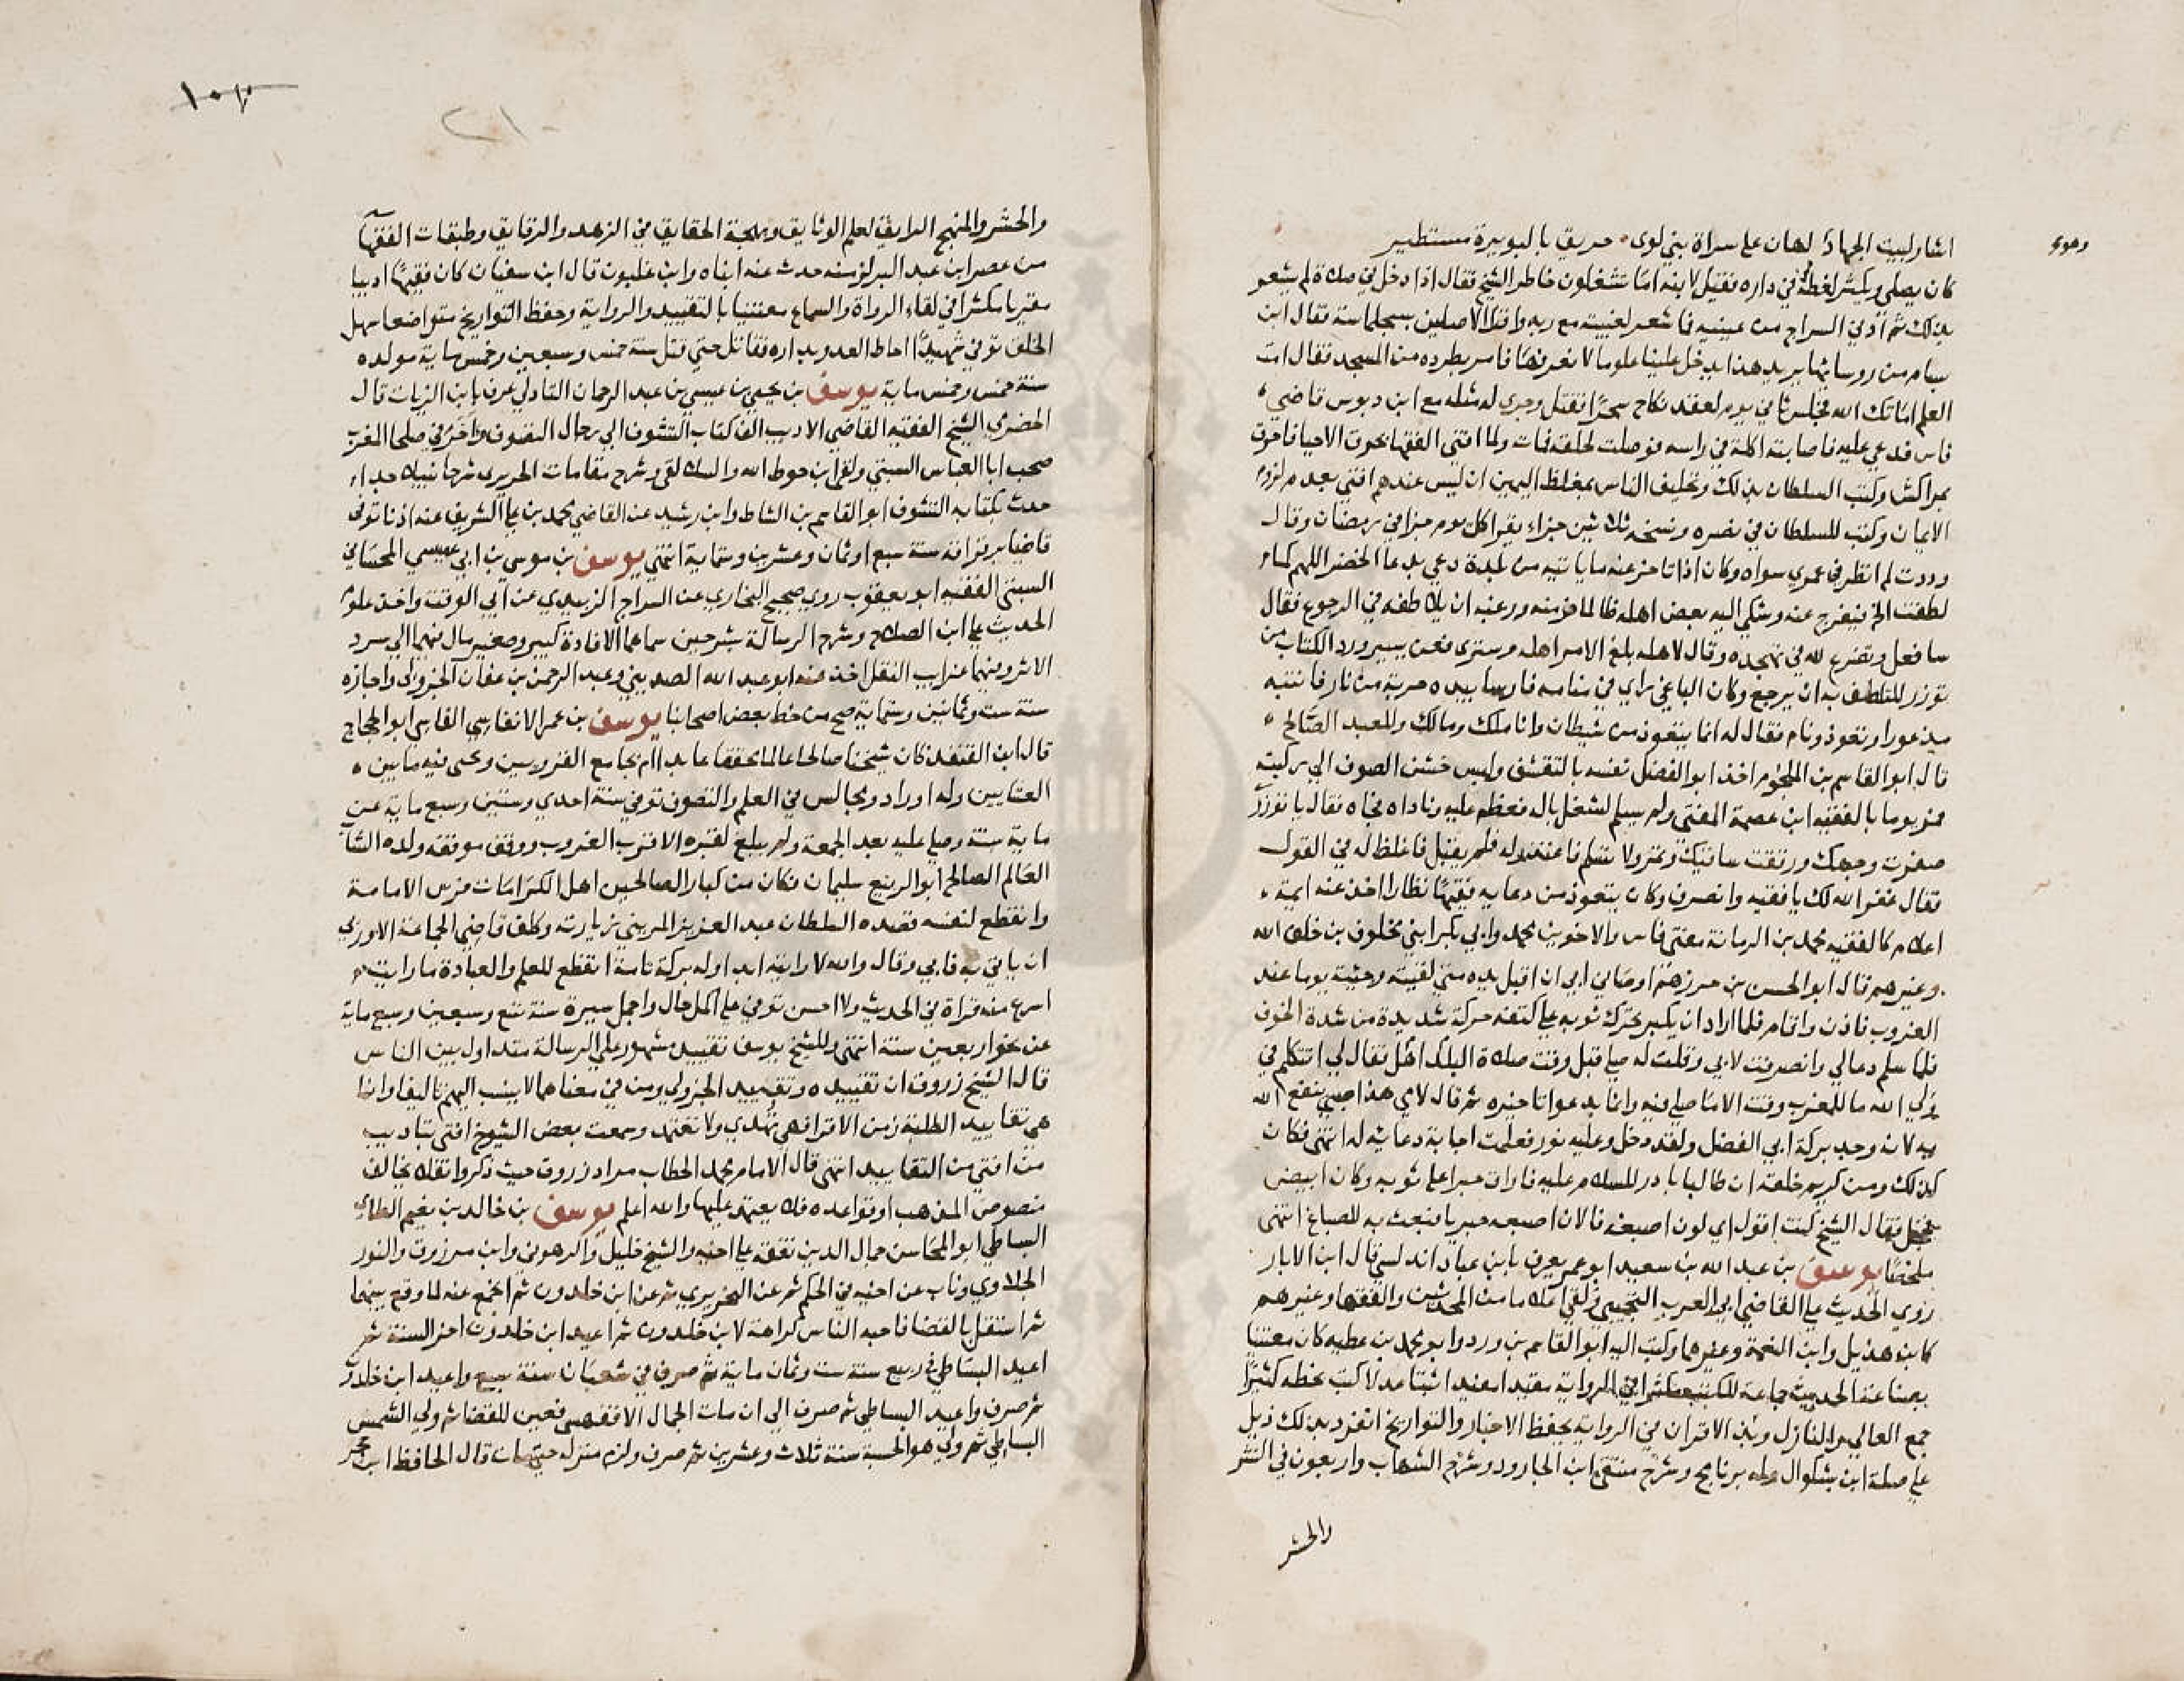 اشار لبيت الجهاد لهان على سراة بني لوى حريق بالبويرة مستطير
وهوى
كان يصلي ويكثر لغطه في داره فقيل لابنه اما تشغلون خاطر الشيخ فقال اذا دخل في صلاة لم يشعر
بذلك ثم ادني السراج من عينيه فما شعر لغيبته مع ربه واقرا الاصلين بسجلماسة فقال ابن
بسام من روسائها يريد هذا يدخل علينا علوما لا نعرفها فامر بطرده من المسجد فقال امت
العلم اماتك الله فجلس ثاني يوم لعقد نكاح سحرا فقتل وجرى له مثله مع ابن دبوس قاضي
فاس فدعي عليه فاصابته اكلة في راسه فوصلت لحلقه فمات ولما افتى الفقها بحرق الاحيا فاحرق
بمراكش وكتب السلطان بذلك وتحليف الناس بمغلظ اليمين ان ليس عندهم افتى بعدم لزوم
الايمان وكتب للسلطان في نصره ونسخه ثلاثين جزاء يقرا كل يوم جزا في رمضان وقال
وددت لم انظر في عمري سواه وكان اذا تاخر عنه ما ياتيه من بلده دعي بدعا الخضر اللهم كما
لطفت الخ فيفرج عنه وشكي اليه بعض اهله ظالما فر منه ورغبه ان يلاطفه في الرجوع فقال
سافعل وتضرع لله في تهجده وقال لاهله بلغ الامر اهله وسترى فعن يسير ورد الكتاب من
توزر للتلطف به ان يرجع وكان الباغي راي في منامه فارسا بيده حربة من نار فانتبه
مذعورا وتعوذ ونام فقال له انما يتعوذ من شيطان وانا ملك ومالك وللعبد الصالح
قال ابو القاسم بن الملجوم اخذ ابو الفضل نفسه بالتقشف ولبس خشن الصوف الي ركبته
فمر يوما بالفقيه ابن عصمة المفتى ولم يسلم لشغل بال فعظم عليه وناداه فجاه فقال يا توزري
صفرت وجهك ورققت ساقيك وتمر ولا تسلم فاعتذر له فلم يقبل فاغلظ له في القول
فقال غفر الله لك يا فقيه وانصرف وكان يتعوذ من دعايه فقيها نظارا اخذ عنه ايمة
اعلام كالفقيه محمد بن الرمانة مفتى فاس والاخوين محمد وابي بكر ابني مخلوف بن خلف الله
وغيرهم قال ابو الحسن بن حرزهم اوصاني ابي ان اقبل يده متى لقيته وجيته يوما عند
الغروب فاذن واقام فلما اراد ان يكبر تحركت ثوبه على كتفه حركة شديدة من شدة الخوف
فلما سلم دعا لي وانصرفت لابي وقلت له صلى قبل وقت صلاة البلد اهل فقال لي اتتكلم في
ولي الله ما للمغرب وقت الا ما صلى فيه وانما يدعوا تاخره ثم قال لامي هذا صبي ينفع الله
به لانه وجد بركة ابي الفضل ولقد دخل وعليه نور فعلمت اجابة دعايه له انتهى فكان
كذلك ومن كريم خلقه ان طالبا بادر للسلام عليه فاراق حبرا على ثوبه وكان ابيض
فخجل فقال الشيخ كنت اقول اي لون اصبغه فالان اصبغه حبريا فبعث به للصباغ انتهى
ملخصا يوسف بن عبد الله بن سعيد ابو عمر يعرف بابن عياد اندلسي قال ابن الابار
روى الحديث على القاضي ابي العرب التجيبي ولقي اعلاما من المحدثين والفقها وغيرهم
كابن هذيل وابن النعمة وغيرهما وكتب اليه ابو القاسم بن ورد وابو محمد بن عطيه كان معتنيا
بصناعة الحديث جماعة للكتب مكثرا في الرواية مقيدا مفيدا ثبتا عدلا كتب بخطه كثيرا
جمع العالي والنازل وبذ الاقران في الرواية يحفظ الاخبار والتواريخ انفرد بذلك ذيل
على صلة ابن بشكوال وله برنامج وشرح منتقى ابن الجارود وشرح الشهاب واربعون في النشر
والحشر
١٠٣
٢١٠
والحشر والمنهج الرايق لعلم الوثايق وبهجة الحقايق في الزهد والرقايق وطبقات الفقها
من عصر ابن عبد البر لزمنه حدث عنه ابناه وابن غلبون قال ابن سفيان كان فقيها اديبا
مقريا مكثرا في لقاء الرواة والسماع معتنيا بالتقييد والرواية وحفظ التواريخ متواضعا سهل
الخلق توفي شهيدا احاط العدو بداره فقاتل حتى قتل سنة خمس وسبعين وخمس ماية مولده
سنة خمس وخمس ماية يوسف بن يحيى بن عيسى بن عبد الرحمان التادلي عرف بابن الزيات قال
الحضرمي الشيخ الفقيه القاضي الاديب الف كتاب التشوف الي رجال التصوف واخر في صلحا المغرب
صحب ابا العباس السبتي ولقي ابن حوط الله والسلالقي وشرح مقامات الحريري شرحا نبيلا جداء
حدث بكتابه التشوف ابو القاسم بن الشاط وابن رشيد عن القاضي محمد بن علي الشريف عنه اذنا توفى
قاضيا برقراقة سنة سبع او ثمان وعشرين وستماية انتهى يوسف بن موسى بن ابي عيسى المحساني
السبتي الفقيه ابو يعقوب روى صحيح البخاري عن السراج الزبيدي عن ابي الوقت واخذ علوم
الحديث على ابن الصلاح وشرح الرسالة بشرحين سماهما الافادة كبير وصغير مال فيهما الي سرد
الاثر وفيهما غرايب النقل اخذ عنه ابو عبد الله الصديني وعبد الرحمن بن عفان الجزولى واجازه
سنة ست وثمانين وستماية صح من خط بعض اصحابنا يوسف بن عمر الانفاسي الفاسي ابو الحجاج
قال ابن القنفذ كان شيخنا صالحا عالما محققا عابدا ام بجامع القرويين وحكى فيه ما بين
العشايين وله اوراد ومجالس في العلم والتصوف توفي سنة احدى وستين وسبع ماية عن
ماية سنة وصلي عليه بعد الجمعة ولم يبلغ لقبره الا قرب الغروب ووقف موقفه ولده الشاب
العالم الصالح ابو الربيع سليمان فكان من كبار الصالحين اهل الكرامات فترك الامامة
وانقطع لنفسه فقصده السلطان عبد العزيز المريني زيارته وكلف قاضي الجماعة الاوربي
ان ياتي به فابي وقال والله لا رايته ابدا وله بركة تامة انقطع للعلم والعبادة ما رايت
اسرع منه قراة في الحديث ولا احسن توفي على اكمل حال واجمل سيرة سنة تسع وسبعين وسبع ماية
عن نحو اربعين سنة انتهى وللشيخ يوسف تقييد مشهور على الرسالة متداول بين الناس
قال الشيخ زروق ان تقييده وتقييد الجزولي ومن في معناهما لا ينسب اليهم تاليفا وانما
هي تقاييد الطلبة زمن الاقرا فهي تهدي ولا تعتمد وسمعت بعض الشيوخ افتى بتاديب
من افتى من التقاييد انتهى قال الامام محمد الحطاب مراد زروق حيث ذكروا نقلا يخالف
نصوص المذهب او قواعده فلا يعتمد عليها والله اعلم يوسف بن خالد بن نعيم الطاي
البساطي ابو المحاسن جمال الدين تفقه على اخيه والشيخ خليل والرهوني وابن مرزوق والنور
الجلاوي وناب عن اخيه في الحكم ثم عن النحريري ثم عن ابن خلدون ثم انجمع عنه لما وقع بينهما
ثم استقل بالقضا فاحبه الناس كراهة لابن خلدون ثم اعيد ابن خلدون اخر السنة ثم
اعيد البساطي في ربيع سنة ست وثمان ماية ثم صرف في شعبان سنة سبع واعيد ابن خلدون
ثم صرف واعيد البساطي ثم صرف الي ان مات الجمال الاقفهسي فعين للقضا ثم ولي الشمس
البساطي ثم ولي هو الحسبة سنة ثلاث وعشرين ثم صرف ولزم منزله حتى مات قال الحافظ ابن حجر